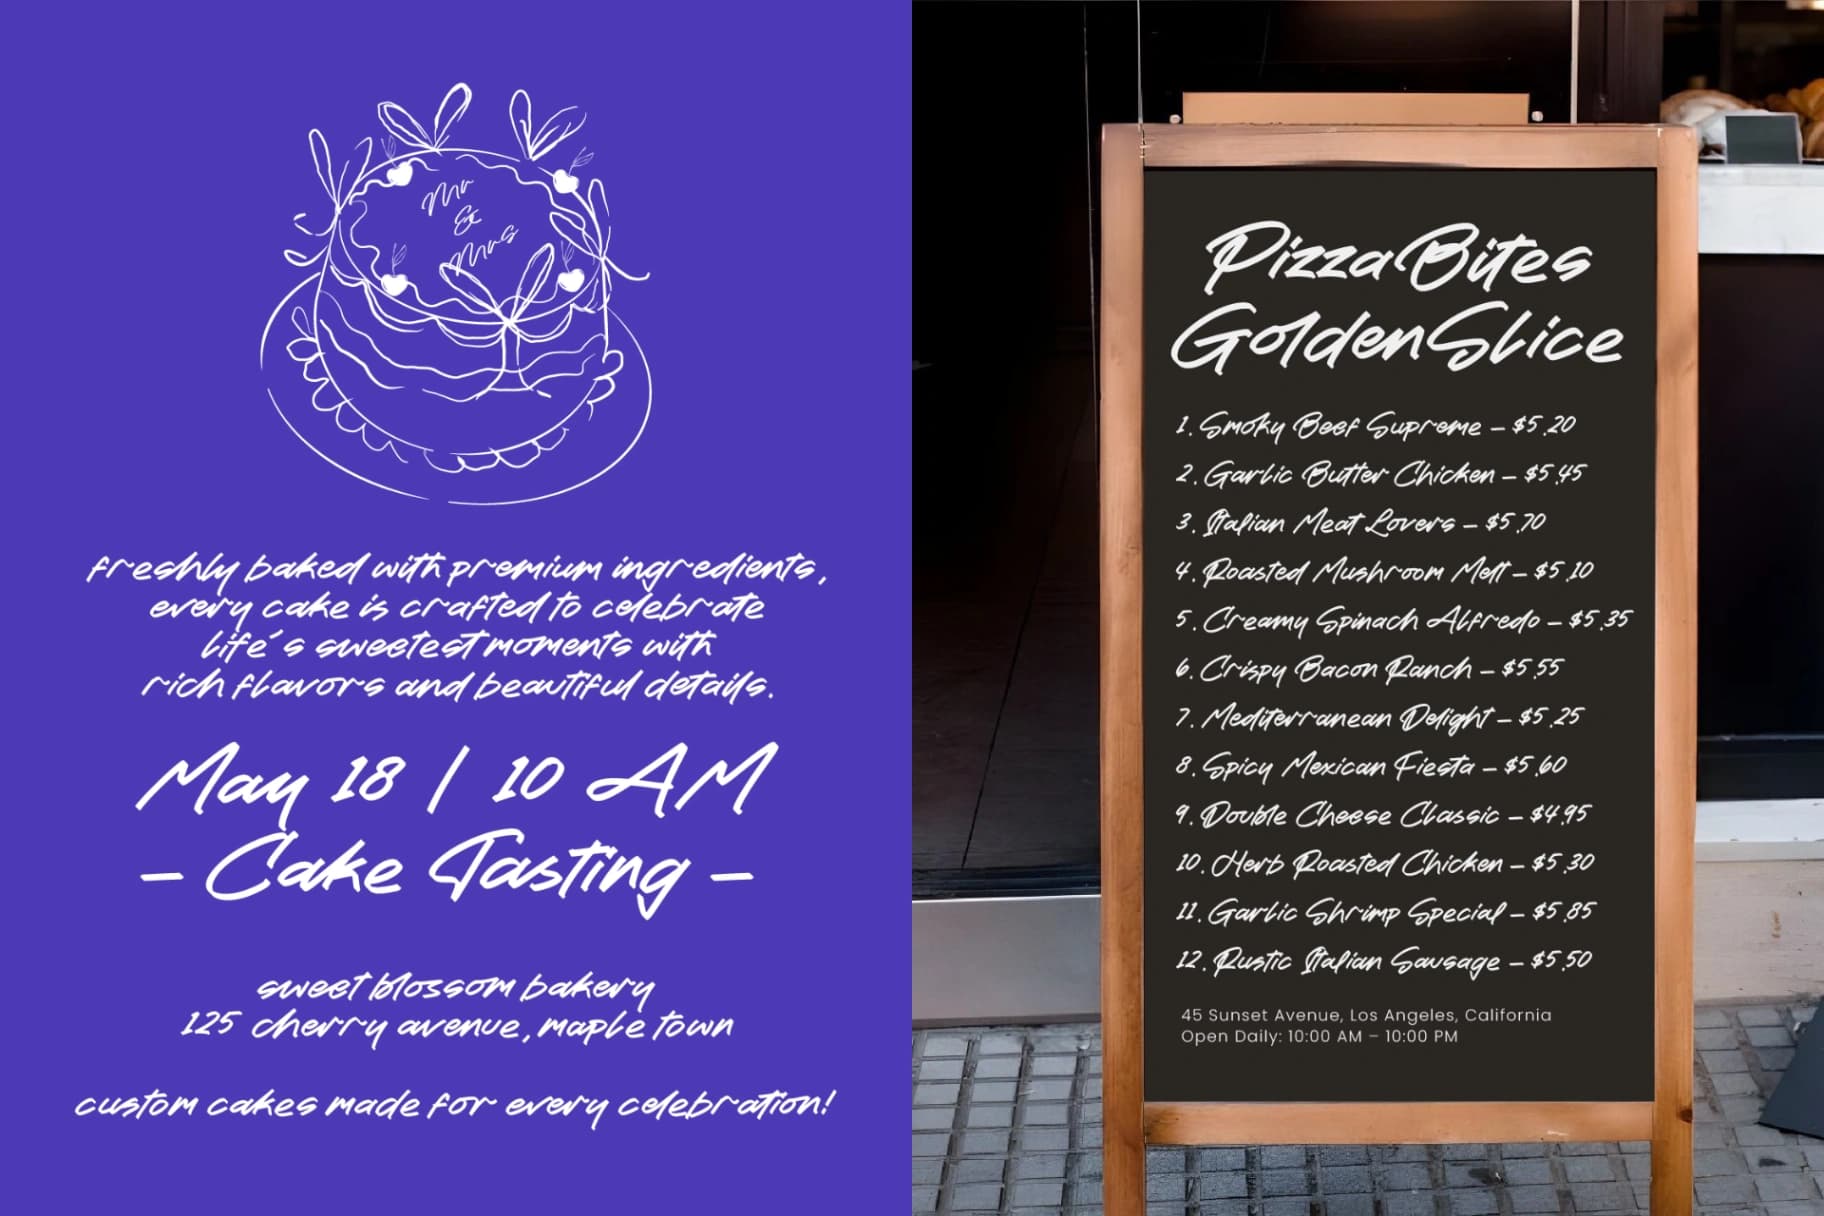 Mr
&
Mrs
freshly baked with premium ingredients,
every cake is crafted to celebrate
life's sweetest moments with
rich flavors and beautiful details.
May 18 | 10 AM
– Cake Tasting –
sweet blossom bakery
125 cherry avenue, maple town
custom cakes made for every celebration!
Pizza Bites
Golden Slice
1. Smoky Beef Supreme – $5.20
2. Garlic Butter Chicken – $5.45
3. Italian Meat Lovers – $5.70
4. Roasted Mushroom Melt – $5.10
5. Creamy Spinach Alfredo – $5.35
6. Crispy Bacon Ranch – $5.55
7. Mediterranean Delight – $5.25
8. Spicy Mexican Fiesta – $5.60
9. Double Cheese Classic – $4.95
10. Herb Roasted Chicken – $5.30
11. Garlic Shrimp Special – $5.85
12. Rustic Italian Sausage – $5.50
45 Sunset Avenue, Los Angeles, California
Open Daily: 10:00 AM – 10:00 PM